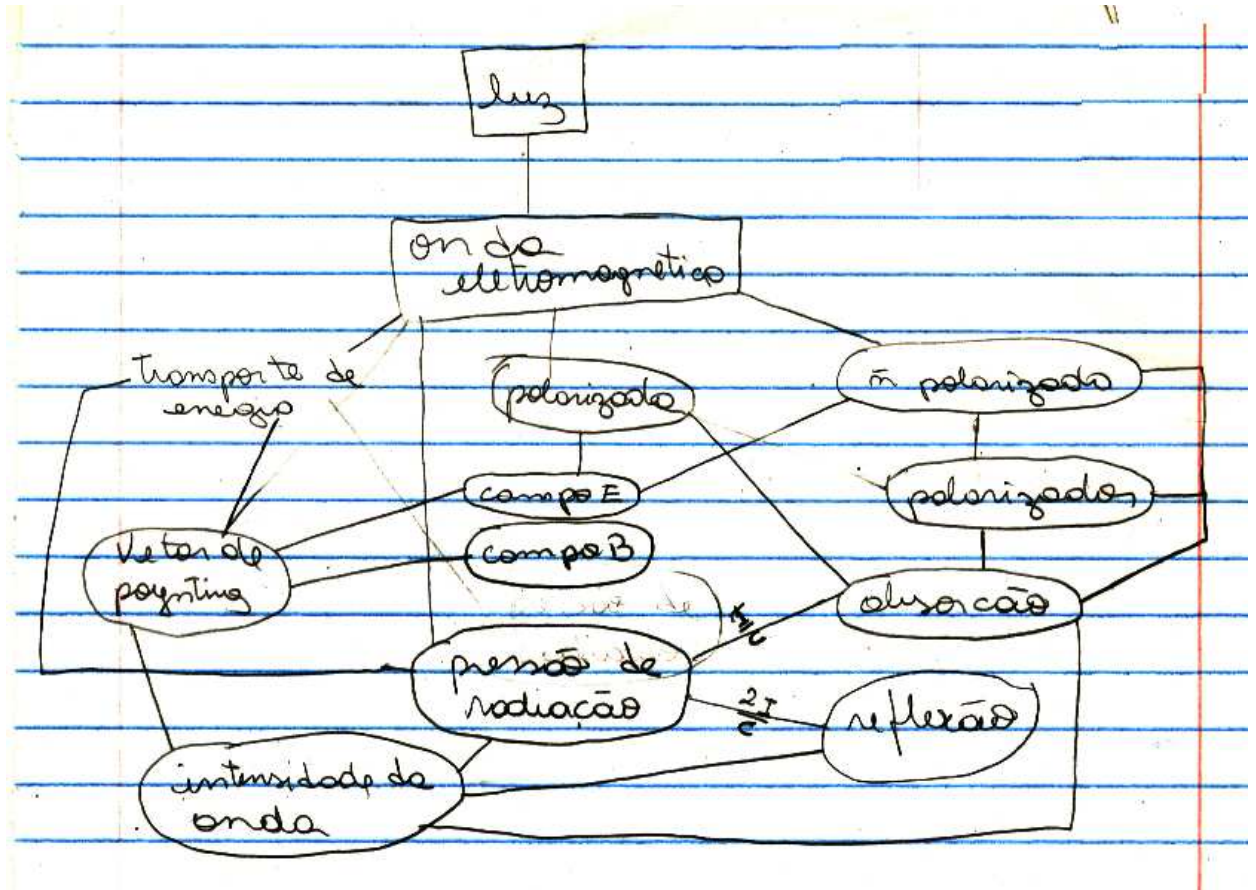 luz
onda
eletromagnética
transporte de
energia
polarizada
ñ polarizada
campo E
polarizador
campo B
vetor de
poynting
absorcão
I/c
pressão de
radiação
2I/c
reflexão
intensidade da
onda